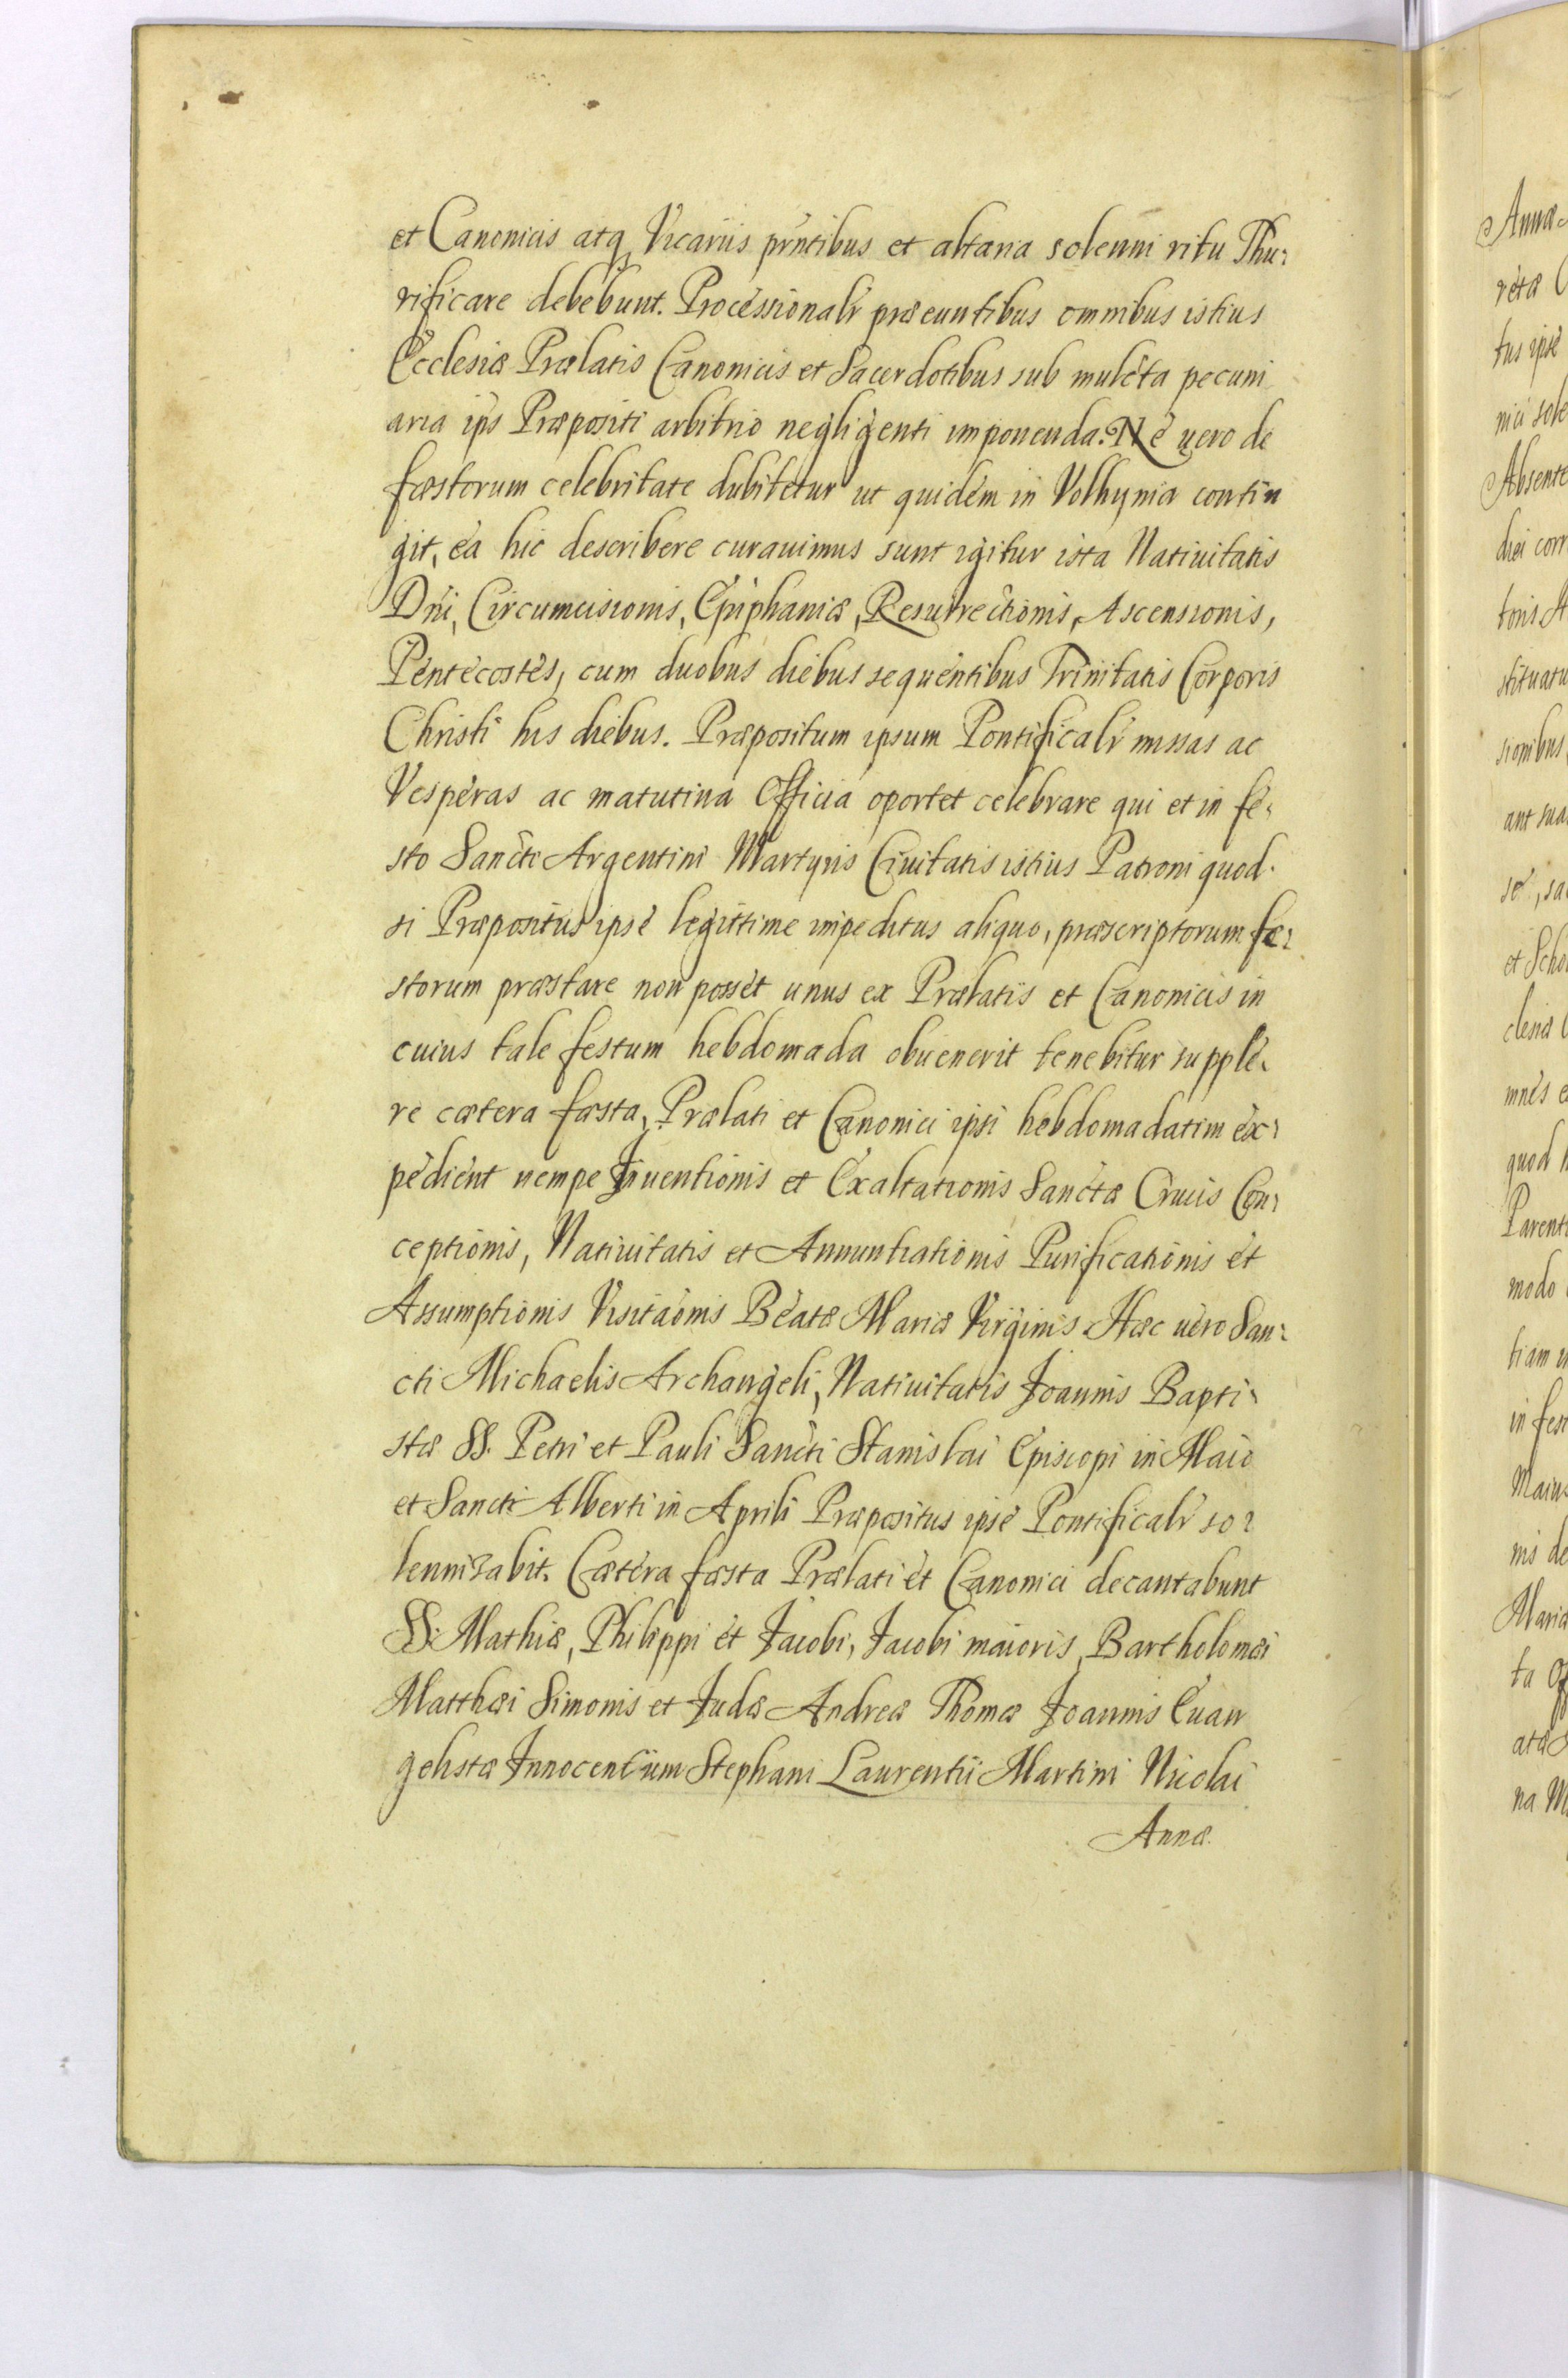 et Canonicis atq Vicariis pr̃ntibus et altaria solenni ritu Thu:
rificare debebunt. Processionalr præeuntibus omnibus istius
Ecclesiæ Prælatis Canonicis et Sacerdotibus sub mulcta pecuni
aria ips Præpositi arbitrio negligenti imponenda. Ne uero de
fæstorum celebritate dubitetur ut quidem in Volhynia contin
git, ea hic describere curauimus sunt igitur ista Natiuitatis
Dñi, Circumcisionis, Epiphaniæ, Resurrectionis, Ascensionis,
Pentecostes, cum duobus diebus sequentibus Trinitatis Corporis
Christi his diebus. Præpositum ipsum Pontificalr missas ac
Vesperas ac matutina Officia oportet celebrare qui et in fe:
sto Sancti Argentini Martyris Ciuitatis istius Patroni quod
si Præpositus ipse legittime impeditus aliquo, præscriptorum fe:
storum præstare non posset unus ex Prælatis et Canonicis in
cuius tale festum hebdomada obuenerit tenebitur supple:
re cætera fæsta, Prælati et Canonici ipsi hebdomadatim ex:
pedient nempe Inuentionis et Exaltationis Sanctæ Crucis Con:
ceptionis, Natiuitatis et Annuntiationis Purificationis et
Assumptionis Visitaõnis Beatæ Mariæ Virginis Hæc uero San:
cti Michaelis Archangeli, Natiuitatis Joannis Bapti:
stæ SS. Petri et Pauli Sancti Stanislai Episcopi in Maio
et Sancti Alberti in Aprili Præpositus ipse Pontificalr so:
lennizabit. Cætera fæsta Prælati et Canonici decantabunt
SS: Mathiæ, Philippi et Jacobi, Jacobi maioris, Bartholomæi
Matthæi Simonis et Judæ Andreæ Thomæ Joannis Euan
gelistæ Innocentium Stephani Laurentii Martini Nicolai
Annæ.